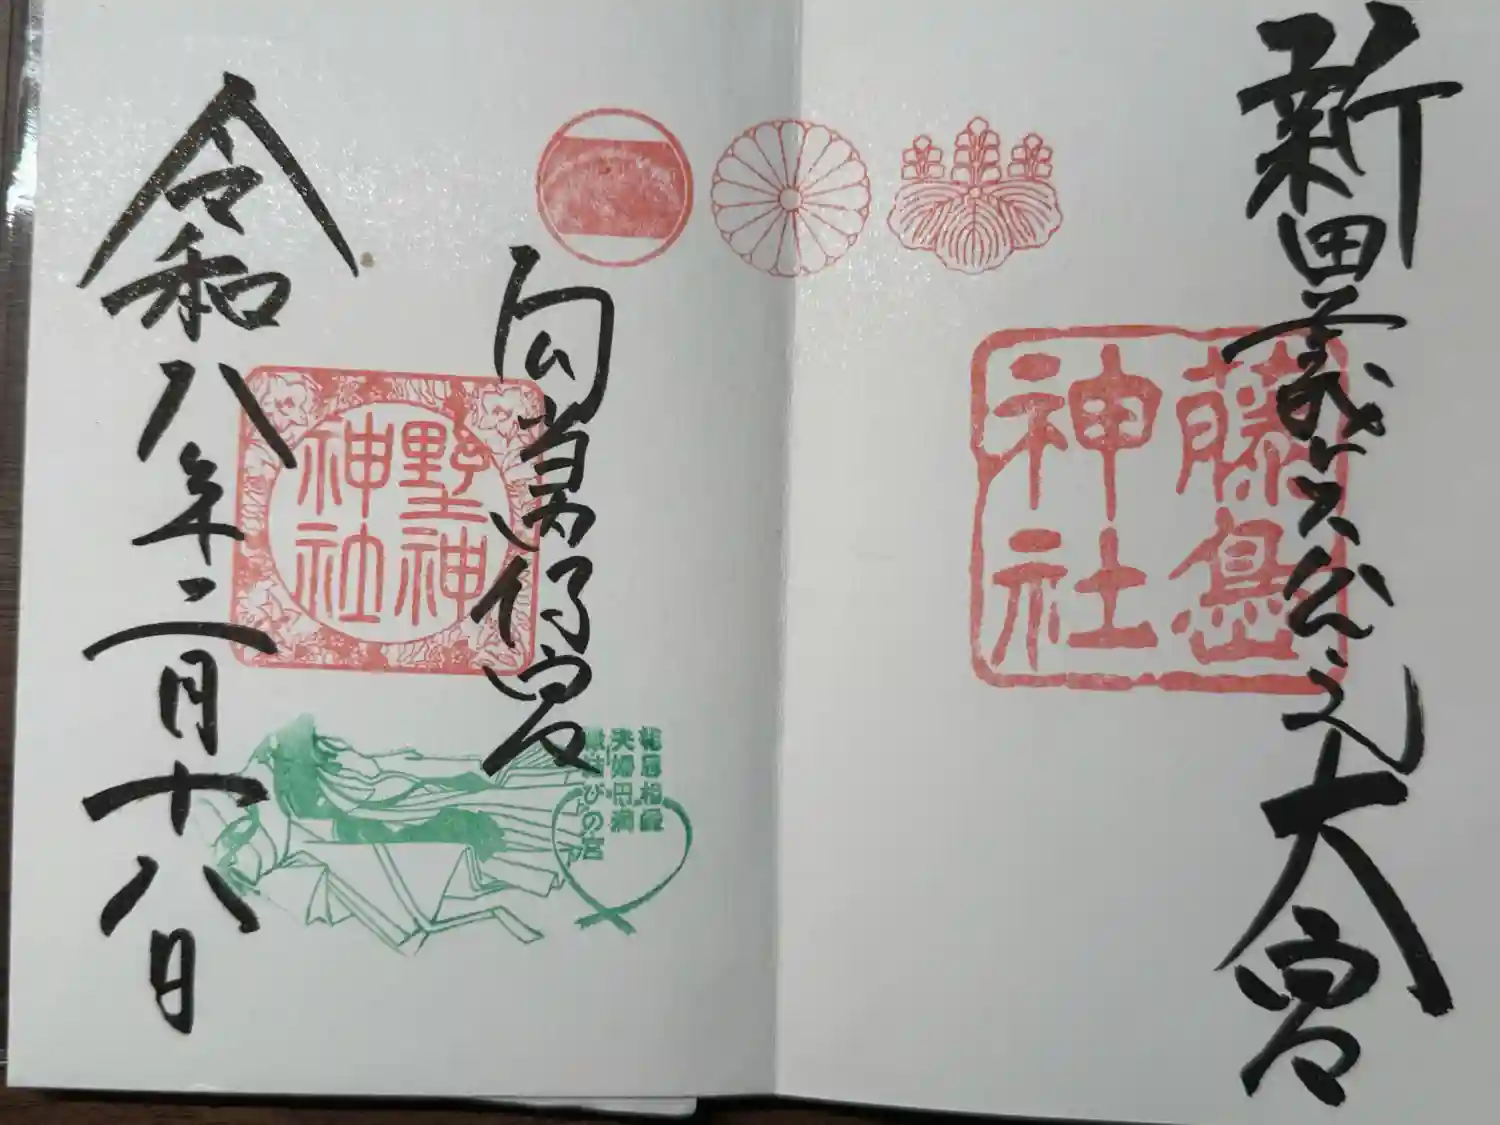 新田義貞公之大宮
藤島
神社
勾當内侍宮
夫婦円満
縁結びの宮
野神
神社
令和八年二月十八日